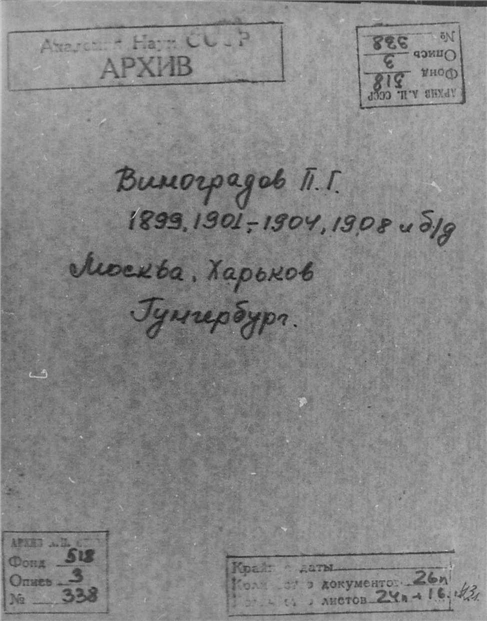 Академия Наук СССР
АРХИВ
АРХИВ А.Н. СССР
Фонд 518
Опись 3
№ 338
Виноградов П.Г.
1899, 1901-1904, 1908 и б/д
Москва, Харьков
Гунгербург.
АРХИВ А.Н.
Фонд 518
Опись 3
№ 338
Крайние даты
Количество документов 26п
листов 24п + 16.